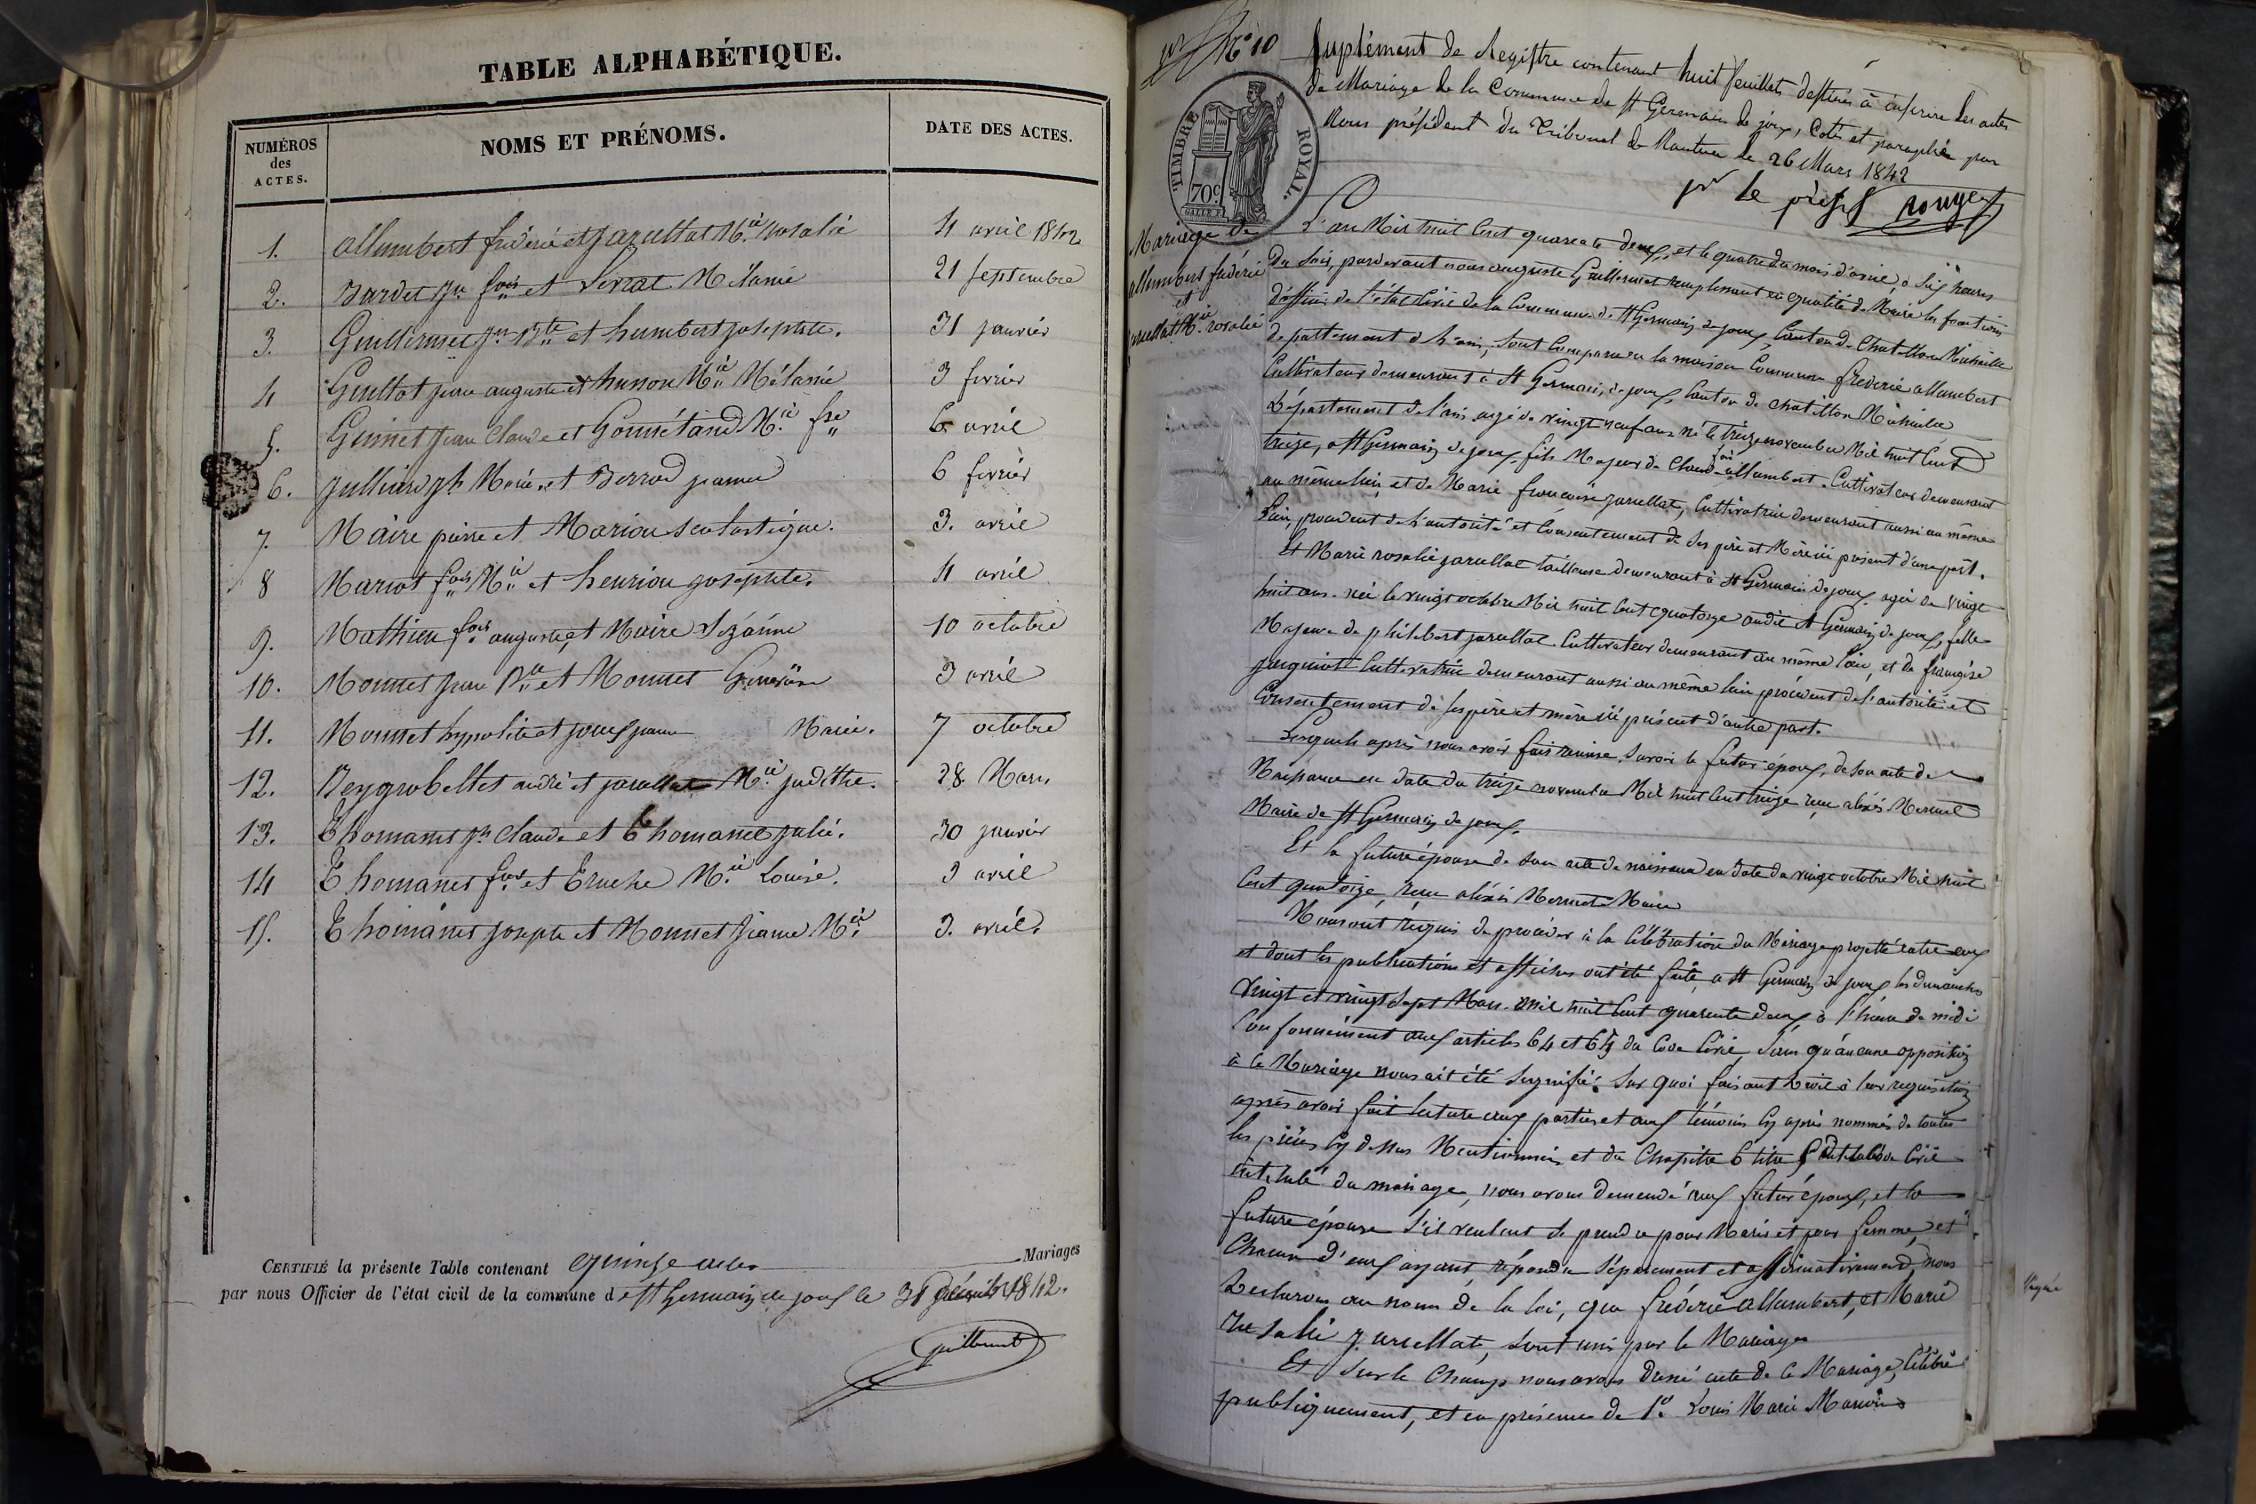 TABLE ALPHABÉTIQUE.
NUMÉROS
des
ACTES.
NOMS ET PRÉNOMS.
DATE DES ACTES.
1. allumbert fréderic et jarullat M.ie Rosalie 4 avril 1842
2. Bardet Jn fois et Serrat Mélanie 21 septembre
3. Guillermet Jn Bte et humbert josephte. 31 janvier
4 Guillot jean auguste et husson M.ie Mélanie 3 fevrier
5. Guinet Jean Claude et M.ie fse 6 avril
6. Julliard jh Marie et Berrod jeanne 6 fevrier
7. Maire pierre et Marion scolastique. 3. avril
8 Mariot fois M.ie et henriou josephte. 4 avril
9. Mathieu fois auguste, et Maire Suzanne 10 octobre
10. Monnet Jean Bte et Monnet 3 avril
11. Monnet hypolite et joux jeanne Marie. 7 octobre
12. Reygrobellet andré et jarullat M.ie judithe. 28 Mars
13. Thomasset jh Claude et Thomasset julie. 30 janvier
14 Thomasset fois et M.ie Louise. 3 avril
15. Thomasset josephe et Monnet Jeanne M.ie 3. avril.
CERTIFIÉ la présente Table contenant quinze actes Mariages
par nous Officier de l'état civil de la commune d e St Germain de joux le 31 Décembre 1842.
Guillermet
No 10
TIMBRE ROYAL.
70c
Suplément de Registre contenant huit feuillets destinés à inscrire les actes
de Mariage de la Commune de St Germain de joux, Cotés et paraphés par
Nous président du Tribunal de Nantua le 26 Mars 1842
pr le présid Rouyer
Mariage de
allumbert fréderic
et
jarullat M.ie rosalie
L'an Mil huit Cent quarante deux, et le quatre du mois d'avril, à six heures
du soir, pardevant nous auguste Guillermet remplissant en qualité de Maire les fonctions
d'officier de l'état Civil de la Commune de St Germain de joux, Canton de Chatillon Michaille
departement de l'ain, sont Comparus en la maison Commune fréderic allumbert
Cultivateur demeurant à St Germain de joux, Canton de Chatillon Michaille
Département de l'ain, agé de vingt neuf ans né le treize novembre Mil huit Cent
treize, a St Germain de joux, fils Majeur de Claude fois allumbert. Cultivateur demeurant
au même lieu, et de Marie francoise jarullat, Cultivatrice demeurant aussi au même
lieu, procédent de l'autorité et Consentement de ses père et Mère ici présent d'une part.
Et Marie rosalie jarullat tailleuse demeurant à St Germain de joux, agée de vingt
huit ans. née le vingt octobre Mil huit Cent quatorze audit St Germain de joux, fille
Majeure de philibert jarullat Cultivateur demeurant au même lieu, et de françoise
Cultivatrice demeurant aussi au même lieu procédent de l'autorité et
Consentement de ses père et mère ici présent d'autre part.
Lesquels après nous avoir fait remise, Savoir le futur époux, de son acte de
Naissance en date du treize novembre Mil huit Cent treize reçu alexis Mermet
Maire de St Germain de joux.
Et la future épouse de son acte de naissance en date du vingt octobre Mil huit
Cent quatorze, reçu alexis Mermet Maire
Nous ont requis de procéder à la Célébration du Mariage projetté entre eux
et dont les publications et affiches ont été faite, a St Germain de joux les dimanches
vingt et vingt sept Mars Mil huit Cent quarante deux à l'heure de midi
Conformément aux articles 64 et 65 du Code Civil, Sans qu'aucune opposition
à ce Mariage nous ait été Signifié. Sur quoi faisant droit à leur requisition
après avoir fait lecture aux parties et aux témoins cy après nommés de toutes
les pièces cy dessus Mentionnées et du Chapitre 6 titre du Code Civil
intitulé du mariage, nous avons demandé aux futur époux, et la
future épouse s'il veulent se prendre pour Maris et pour femme, et
Chacun d'eux ayant répondu Séparement et affirmativement, nous
Declarons au nom de la loi, que fréderic allumbert, et Marie
Rosalie jarullat, sont unis par le Mariage
Et Sur le Champ nous avons dressé acte de ce Mariage, Célébré
publiquement, et en présence de 1.o Louis Marie